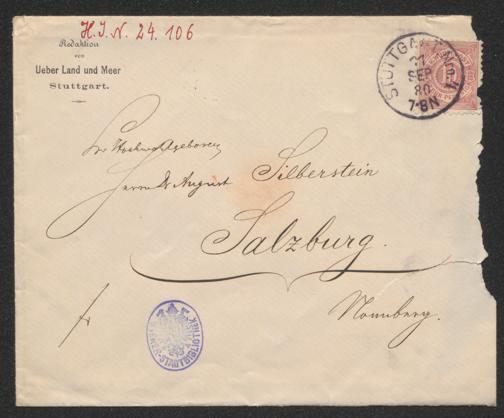 H.I.N. 24.106
Redaktion
von
Ueber Land und Meer
Stuttgart.
STUTTGART
SEP
80
7-8N
Sr Hochwohlgeboren
Herrn Dr August Silberstein
Salzburg.
Nonnberg.
WIENER STADTBIBLIOTHEK